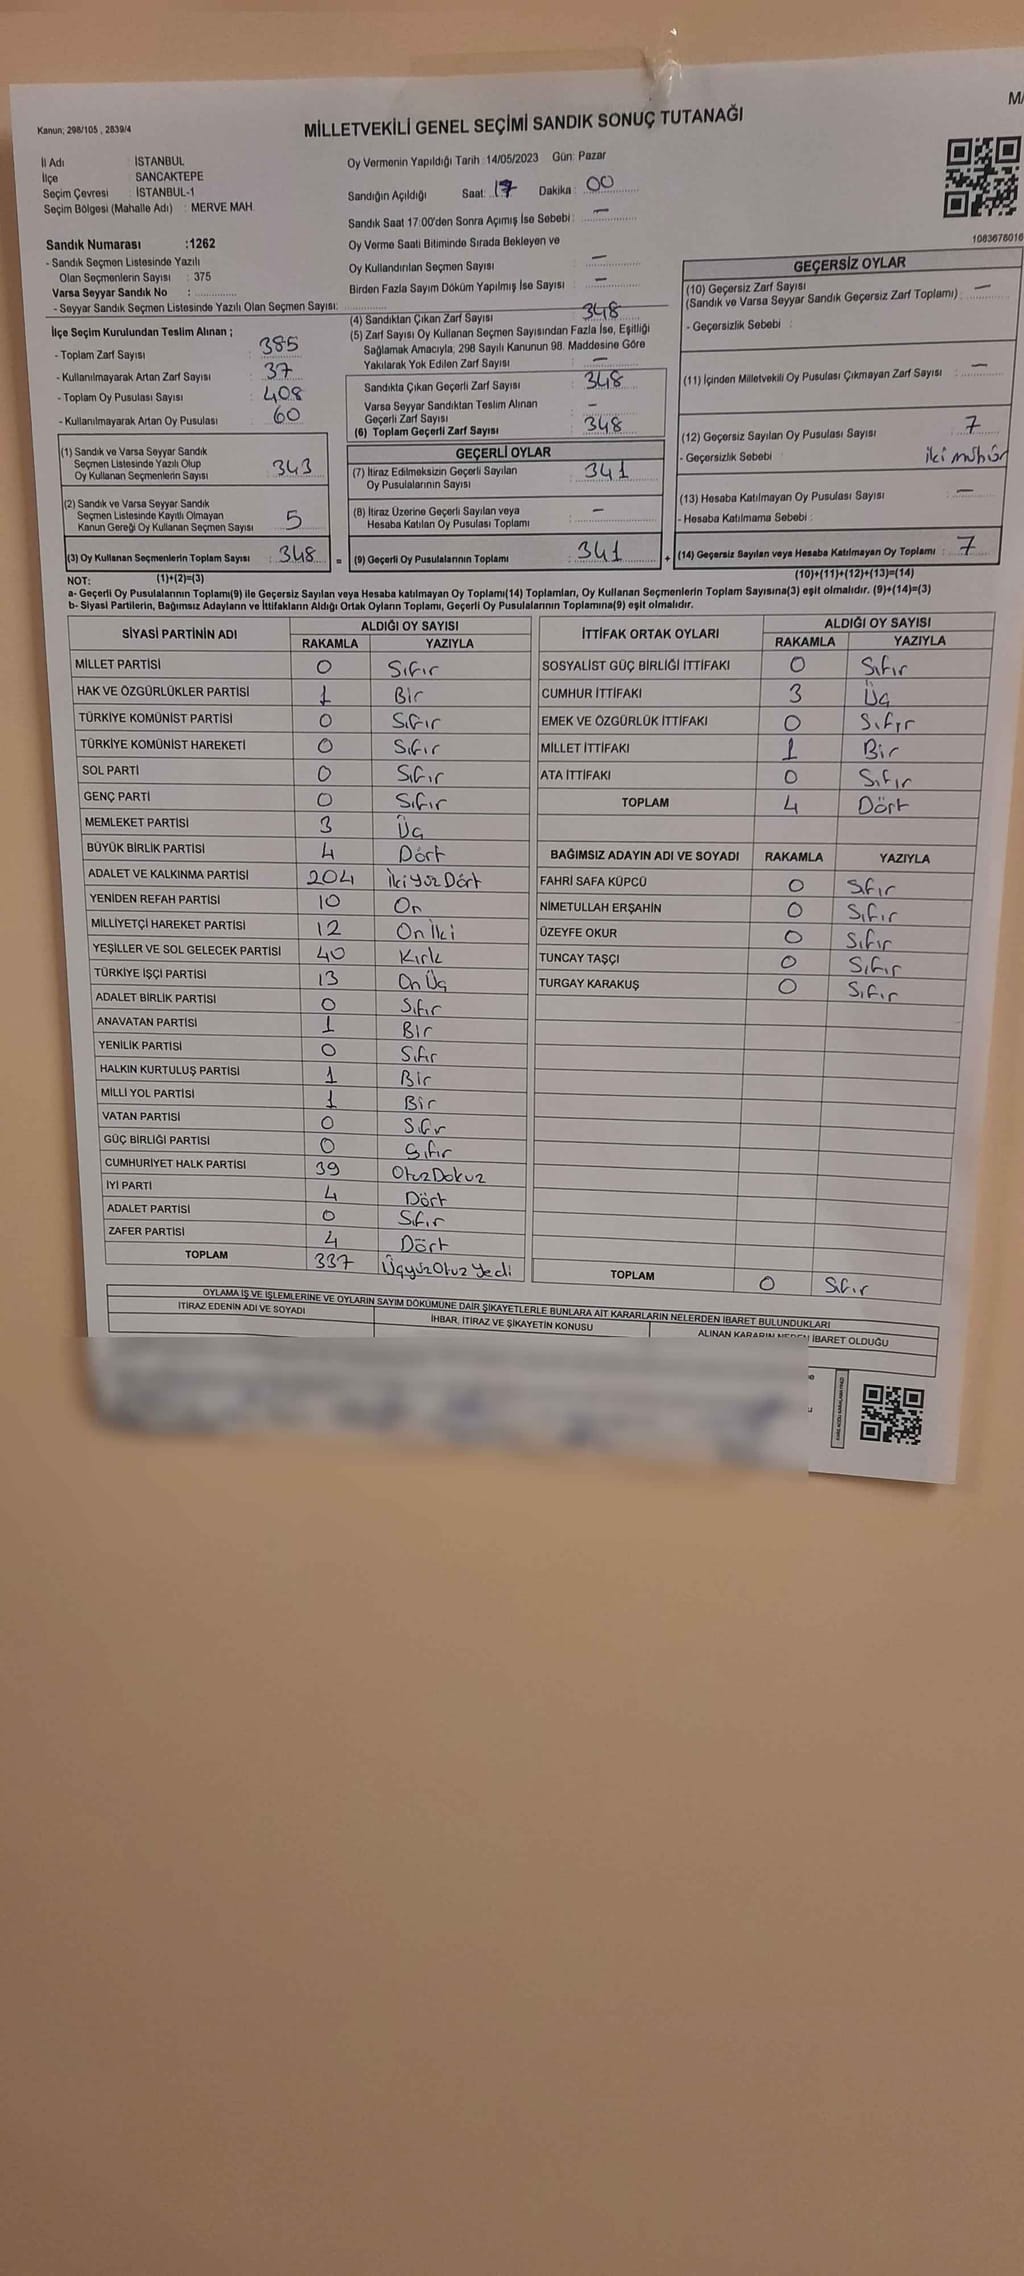 MA
Kanun; 298/105 , 2839/4
MİLLETVEKİLİ GENEL SEÇİMİ SANDIK SONUÇ TUTANAĞI
İl Adı : İSTANBUL
İlçe : SANCAKTEPE
Seçim Çevresi : İSTANBUL-1
Seçim Bölgesi (Mahalle Adı) : MERVE MAH.
Oy Vermenin Yapıldığı Tarih : 14/05/2023 Gün: Pazar
Sandığın Açıldığı Saat: 17 Dakika : 00
Sandık Saat 17:00'den Sonra Açımış İse Sebebi : —
Oy Verme Saati Bitiminde Sırada Bekleyen ve
Oy Kullandırılan Seçmen Sayısı : —
Birden Fazla Sayım Döküm Yapılmış İse Sayısı : —
1083676016
Sandık Numarası :1262
- Sandık Seçmen Listesinde Yazılı
Olan Seçmenlerin Sayısı : 375
Varsa Seyyar Sandık No :
- Seyyar Sandık Seçmen Listesinde Yazılı Olan Seçmen Sayısı:
İlçe Seçim Kurulundan Teslim Alınan ;
- Toplam Zarf Sayısı : 385
- Kullanılmayarak Artan Zarf Sayısı : 37
- Toplam Oy Pusulası Sayısı : 408
- Kullanılmayarak Artan Oy Pusulası : 60
(1) Sandık ve Varsa Seyyar Sandık
Seçmen Listesinde Yazılı Olup
Oy Kullanan Seçmenlerin Sayısı : 343
(2) Sandık ve Varsa Seyyar Sandık
Seçmen Listesinde Kayıtlı Olmayan
Kanun Gereği Oy Kullanan Seçmen Sayısı : 5
(3) Oy Kullanan Seçmenlerin Toplam Sayısı : 348 =
(4) Sandıktan Çıkan Zarf Sayısı : 348
(5) Zarf Sayısı Oy Kullanan Seçmen Sayısından Fazla İse, Eşitliği
Sağlamak Amacıyla, 298 Sayılı Kanunun 98. Maddesine Göre
Yakılarak Yok Edilen Zarf Sayısı : —
Sandıkta Çıkan Geçerli Zarf Sayısı : 348
Varsa Seyyar Sandıktan Teslim Alınan
Geçerli Zarf Sayısı : —
(6) Toplam Geçerli Zarf Sayısı : 348
GEÇERLİ OYLAR
(7) İtiraz Edilmeksizin Geçerli Sayılan
Oy Pusulalarının Sayısı : 341
(8) İtiraz Üzerine Geçerli Sayılan veya
Hesaba Katılan Oy Pusulası Toplamı : —
(9) Geçerli Oy Pusulalarının Toplamı : 341 +
GEÇERSİZ OYLAR
(10) Geçersiz Zarf Sayısı
(Sandık ve Varsa Seyyar Sandık Geçersiz Zarf Toplamı) : —
- Geçersizlik Sebebi :
(11) İçinden Milletvekili Oy Pusulası Çıkmayan Zarf Sayısı : —
(12) Geçersiz Sayılan Oy Pusulası Sayısı : 7
- Geçersizlik Sebebi : iki mühür
(13) Hesaba Katılmayan Oy Pusulası Sayısı : —
- Hesaba Katılmama Sebebi :
(14) Geçersiz Sayılan veya Hesaba Katılmayan Oy Toplamı : 7
NOT: (1)+(2)=(3) (10)+(11)+(12)+(13)=(14)
a- Geçerli Oy Pusulalarının Toplamı(9) ile Geçersiz Sayılan veya Hesaba katılmayan Oy Toplamı(14) Toplamları, Oy Kullanan Seçmenlerin Toplam Sayısına(3) eşit olmalıdır. (9)+(14)=(3)
b- Siyasi Partilerin, Bağımsız Adayların ve İttifakların Aldığı Ortak Oyların Toplamı, Geçerli Oy Pusulalarının Toplamına(9) eşit olmalıdır.
SİYASİ PARTİNİN ADI ALDIĞI OY SAYISI
RAKAMLA YAZIYLA
MİLLET PARTİSİ 0 Sıfır
HAK VE ÖZGÜRLÜKLER PARTİSİ 1 Bir
TÜRKİYE KOMÜNİST PARTİSİ 0 Sıfır
TÜRKİYE KOMÜNİST HAREKETİ 0 Sıfır
SOL PARTİ 0 Sıfır
GENÇ PARTİ 0 Sıfır
MEMLEKET PARTİSİ 3 Üç
BÜYÜK BİRLİK PARTİSİ 4 Dört
ADALET VE KALKINMA PARTİSİ 204 İki Yüz Dört
YENİDEN REFAH PARTİSİ 10 On
MİLLİYETÇİ HAREKET PARTİSİ 12 On İki
YEŞİLLER VE SOL GELECEK PARTİSİ 40 Kırk
TÜRKİYE İŞÇİ PARTİSİ 13 On Üç
ADALET BİRLİK PARTİSİ 0 Sıfır
ANAVATAN PARTİSİ 1 Bir
YENİLİK PARTİSİ 0 Sıfır
HALKIN KURTULUŞ PARTİSİ 1 Bir
MİLLİ YOL PARTİSİ 1 Bir
VATAN PARTİSİ 0 Sıfır
GÜÇ BİRLİĞİ PARTİSİ 0 Sıfır
CUMHURİYET HALK PARTİSİ 39 Otuz Dokuz
İYİ PARTİ 4 Dört
ADALET PARTİSİ 0 Sıfır
ZAFER PARTİSİ 4 Dört
TOPLAM 337 Üçyüz Otuz Yedi
İTTİFAK ORTAK OYLARI ALDIĞI OY SAYISI
RAKAMLA YAZIYLA
SOSYALİST GÜÇ BİRLİĞİ İTTİFAKI 0 Sıfır
CUMHUR İTTİFAKI 3 Üç
EMEK VE ÖZGÜRLÜK İTTİFAKI 0 Sıfır
MİLLET İTTİFAKI 1 Bir
ATA İTTİFAKI 0 Sıfır
TOPLAM 4 Dört
BAĞIMSIZ ADAYIN ADI VE SOYADI RAKAMLA YAZIYLA
FAHRİ SAFA KÜPCÜ 0 Sıfır
NİMETULLAH ERŞAHİN 0 Sıfır
ÜZEYFE OKUR 0 Sıfır
TUNCAY TAŞÇI 0 Sıfır
TURGAY KARAKUŞ 0 Sıfır
TOPLAM 0 Sıfır
OYLAMA İŞ VE İŞLEMLERİNE VE OYLARIN SAYIM DÖKÜMÜNE DAİR ŞİKAYETLERLE BUNLARA AİT KARARLARIN NELERDEN İBARET BULUNDUKLARI
İTİRAZ EDENİN ADI VE SOYADI İHBAR, İTİRAZ VE ŞİKAYETİN KONUSU ALINAN KARARIN NEDEN İBARET OLDUĞU